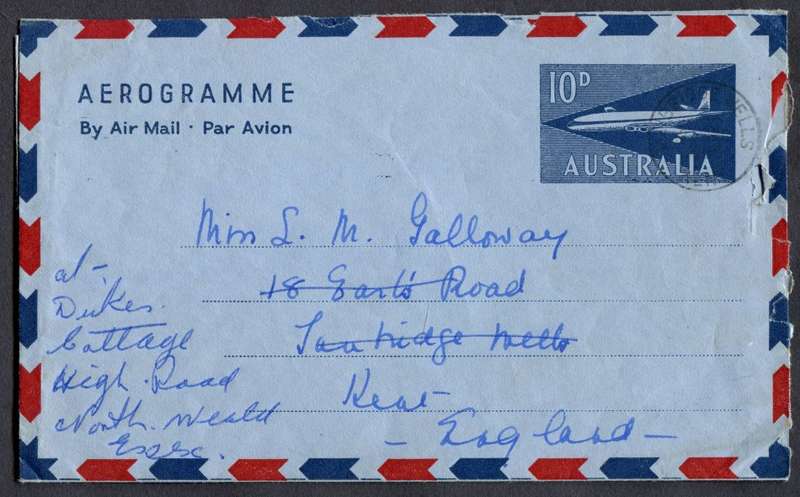 AEROGRAMME
By Air Mail · Par Avion
10D
AUSTRALIA
WELLS
Miss L. M. Galloway
18 Earl's Road
Tunbridge Wells
Kent
- England -
at -
Dukes
Cottage
High Road
North Weald
Essex.